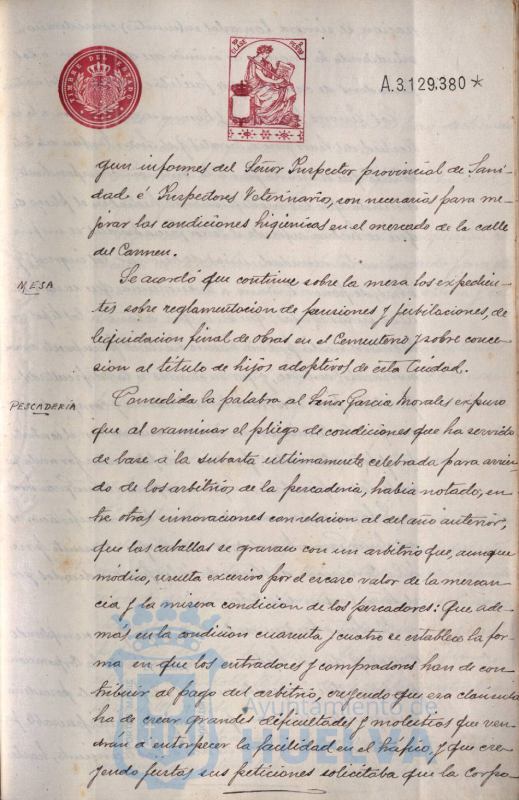 TIMBRE DEL ESTADO
CLASE
A.3.129.380*
gun informes del Señor Inspector provincial de Sani-
dad é Inspectores Veterinarios, son necesarias para me-
jorar las condiciones higiénicas en el mercado de la calle
del Carmen.
MESA
Se acordó que continue sobre la mesa los expedien-
tes sobre reglamentacion de pensiones y jubilaciones, de
liquidacion final de obras en el Cementerio y sobre conce-
sion al título de hijos adoptivos de esta Ciudad.
PESCADERÍA
Concedida la palabra al Señor Garcia Morales expuso
que al examinar el pliego de condiciones que ha servido
de base á la subasta ultimamente celebrada para arrien-
do de los arbitrios de la pescaderia, habia notado, en-
tre otras innovaciones con relacion al del año anterior,
que las caballas se gravan con un arbitrio que, aunque
módico, resulta excesivo por el escaso valor de la mercan-
cia y la misera condicion de los pescadores: Que ade-
más en la condición cuarenta y cuatro se establece la for-
ma en que los entradores y compradores han de con-
tribuir al pago del arbitrio, creyendo que esa clausula
ha de crear grandes dificultades y molestias que ven-
drán á entorpecer la facilidad en el tráfico, y que cre-
yendo justas sus peticiones solicitaba que la Corpo-
Ayuntamiento de
HUELVA